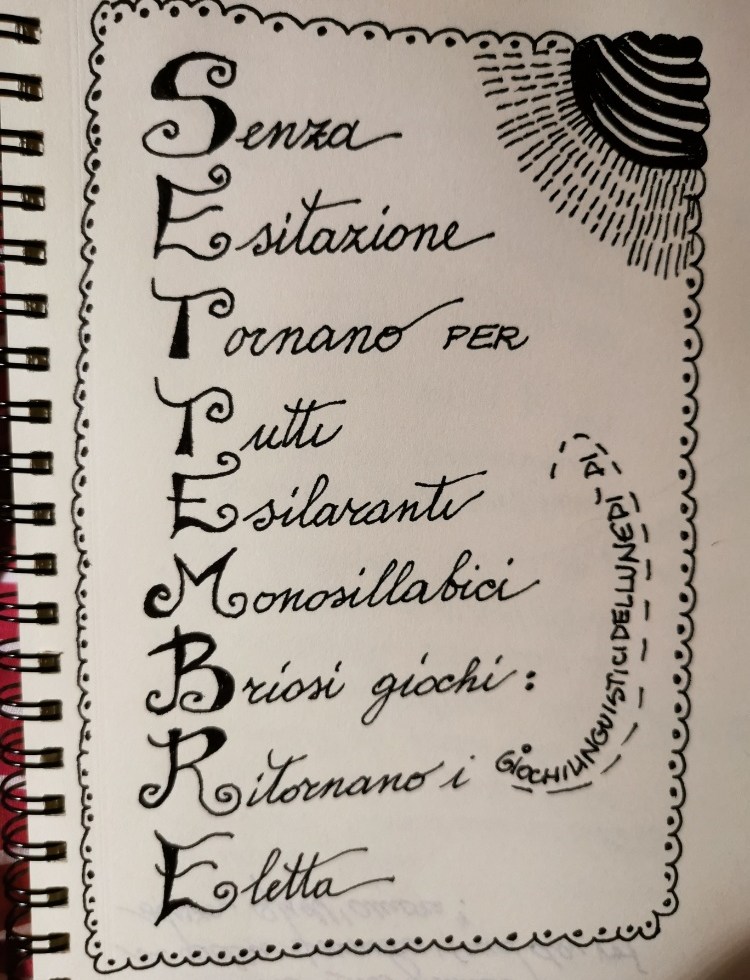 Senza
Esitazione
Tornano PER
Tutti
Esilaranti
Monosillabici
Briosi giochi:
Ritornano i GIOCHILINGUISTICIDELLUNEDÌ DI
Eletta